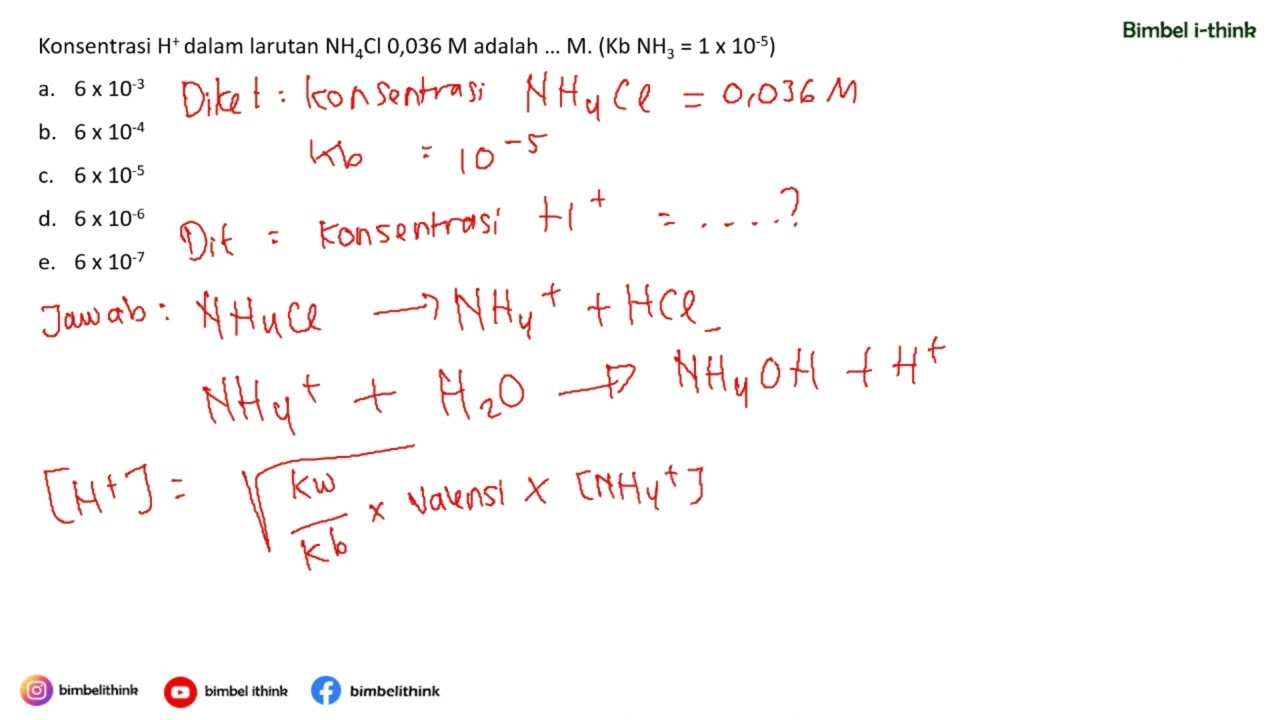 Bimbel i-think
Konsentrasi H⁺ dalam larutan NH₄Cl 0,036 M adalah ... M. (Kb NH₃ = 1 x 10⁻⁵)
a. 6 x 10⁻³
b. 6 x 10⁻⁴
c. 6 x 10⁻⁵
d. 6 x 10⁻⁶
e. 6 x 10⁻⁷
Diket : konsentrasi NH₄Cl = 0,036 M
Kb = 10⁻⁵
Dit = konsentrasi H⁺ = ....?
Jawab : NH₄Cl → NH₄⁺ + HCl_
NH₄⁺ + H₂O → NH₄OH + H⁺
[H⁺] = √ Kw / Kb x valensi x [NH₄⁺]
bimbelithink bimbel ithink bimbelithink